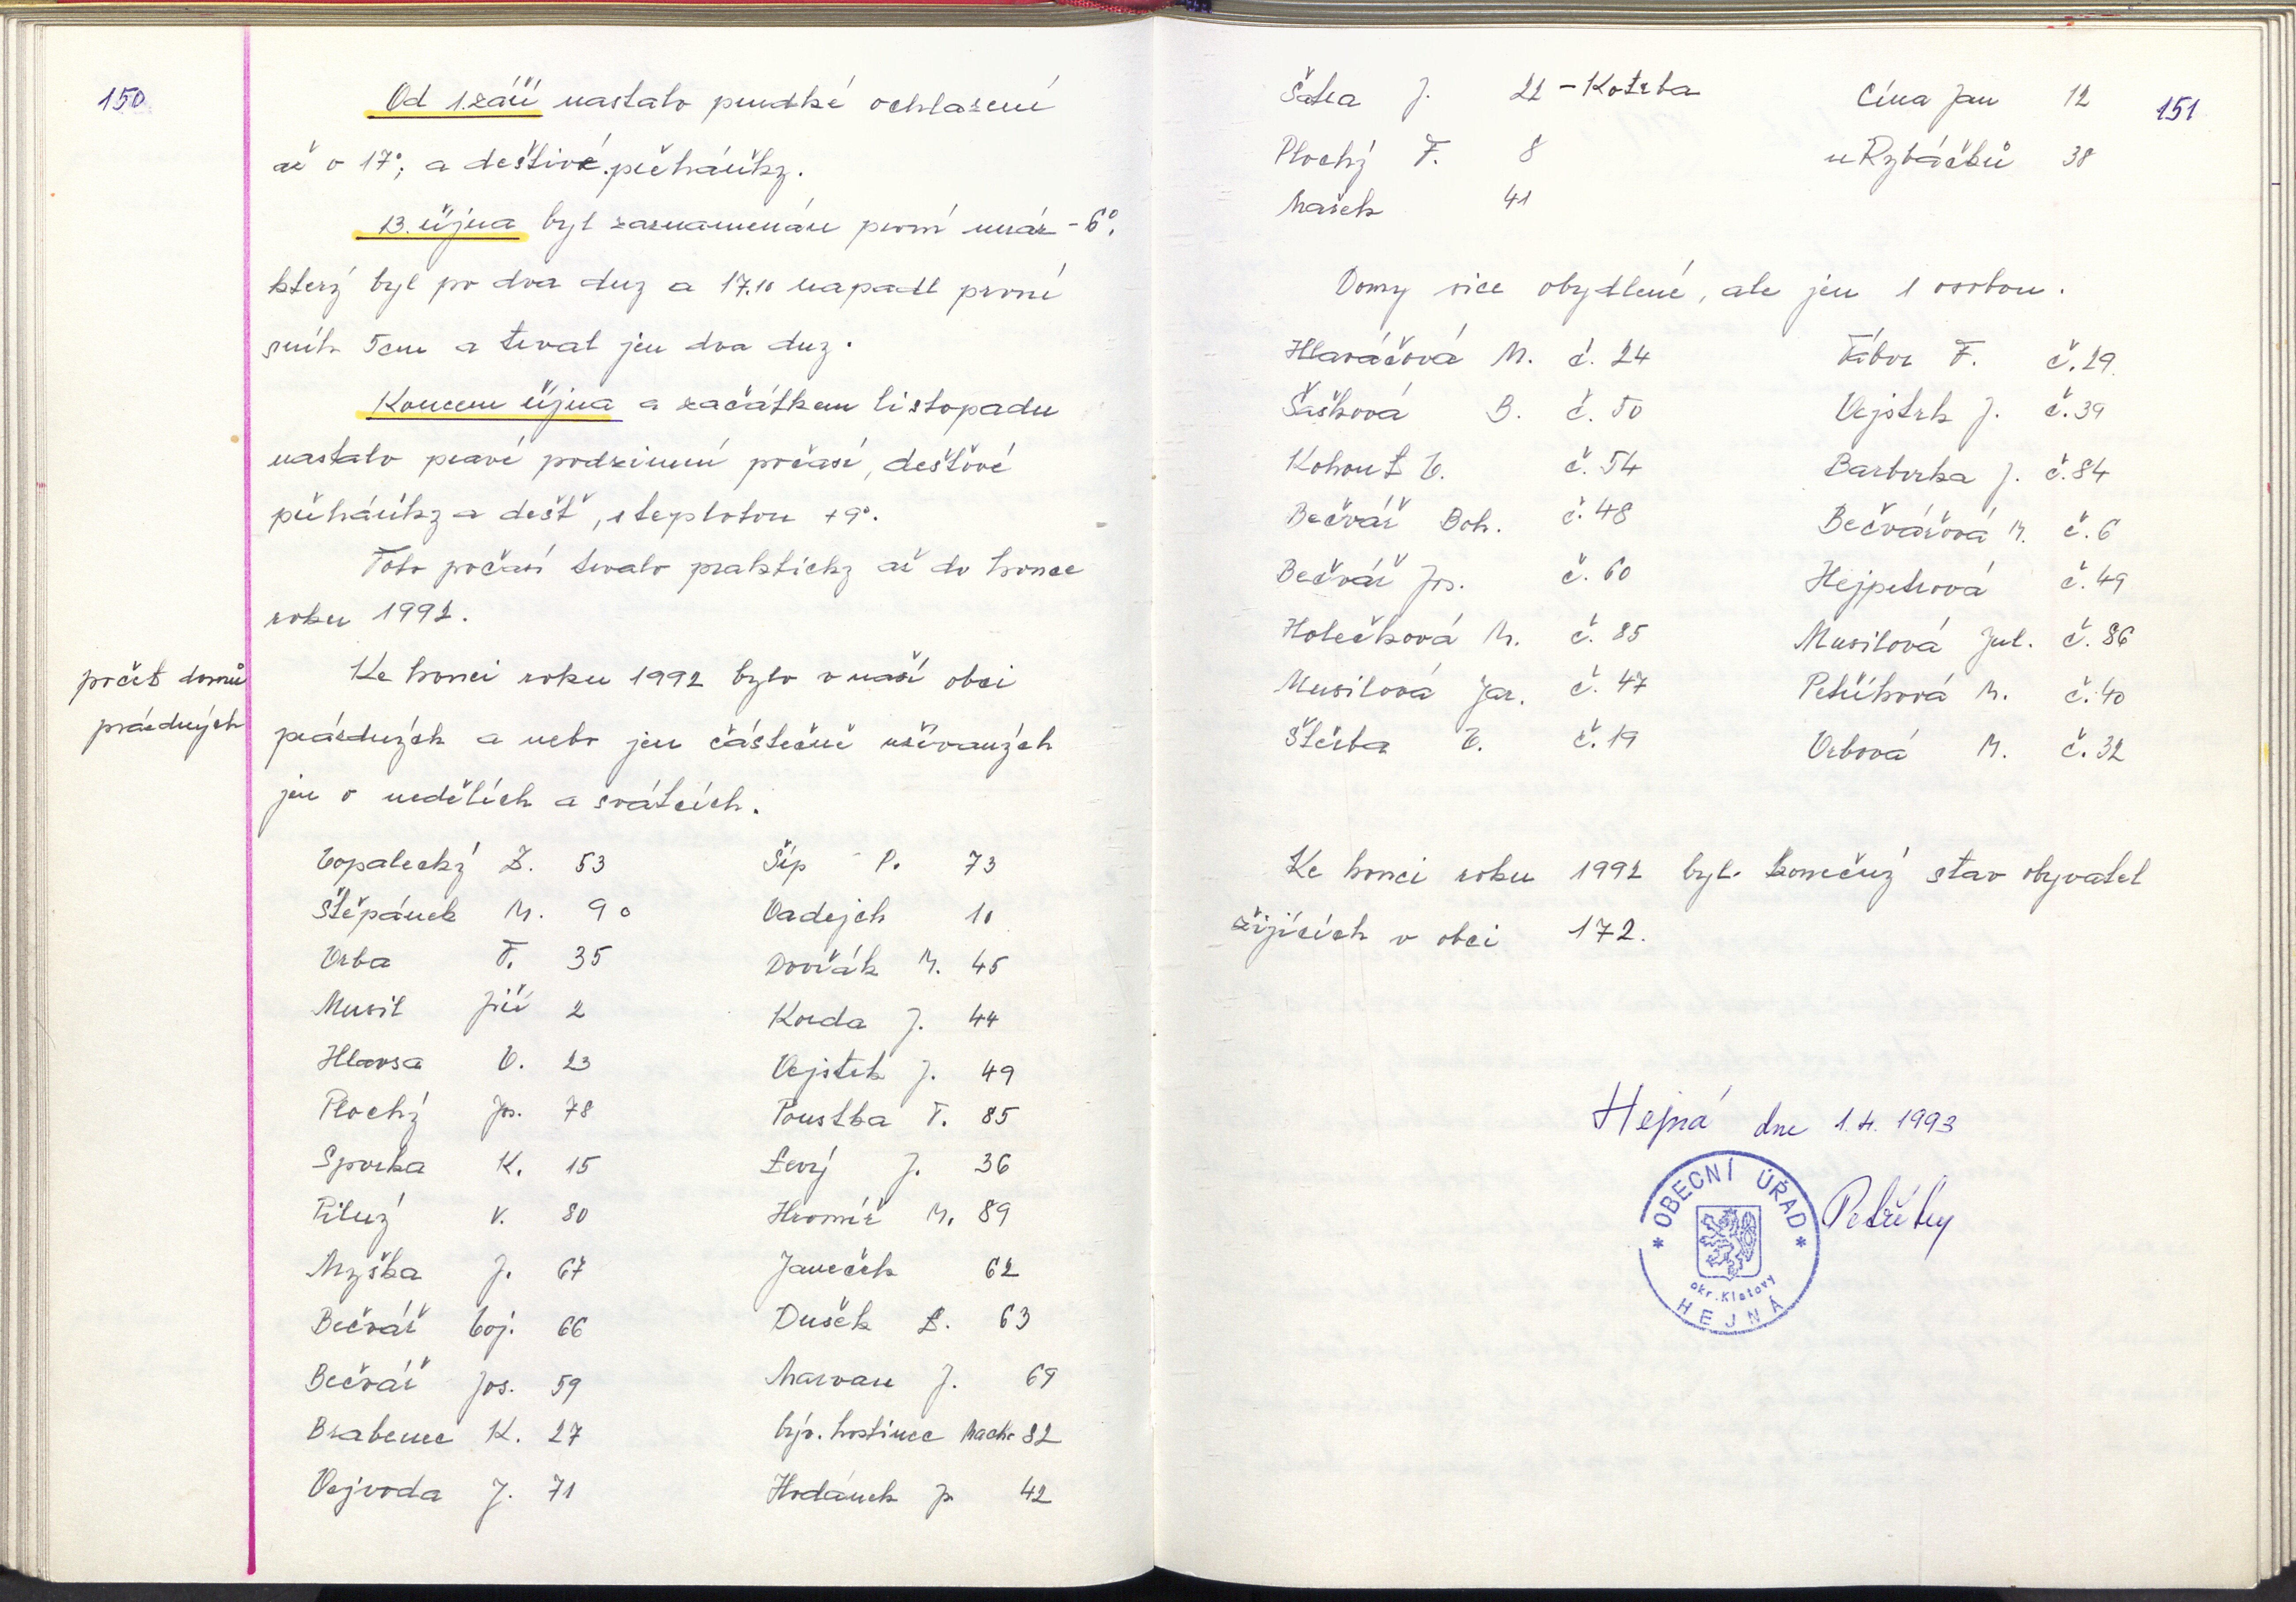 150
Od 1. září nastalo prudké ochlazení
až o 17°, a deštivé přeháňky.
13. října byl zaznamenán první mráz -6°,
který byl po dva dny a 17.10 napadl první
sníh 5cm a trval jen dva dny.
Koncem října a začátkem listopadu
nastalo pravé podzimní počasí, dešťové
přeháňky a dešť, s teplotou +9°.
Toto počasí trvalo prakticky až do konce
roku 1992.
počet domů
prázdných
Ke konci roku 1992 bylo v naší obci
prázdných a nebo jen částečně užívaných
jen o nedělích a svátcích.
Vopalecký Z. 53 Šíp P. 73
Štěpánek M. 90 Vadejch 10
Vrba F. 35 Dvořák M. 45
Musil Jiří 2 Korda J. 44
Hlavsa V. 23 Vejstrk J. 49
Plochý Jos. 78 Poustka F. 85
Sporka K. 15 Levý J. 36
Pilný V. 80 Hromíř M. 89
Myška J. 67 Janeček 62
Bečvář Voj. 66 Dušek L. 63
Bečvář Jos. 59 Marvan J. 69
Brabenec K. 27 býv. hostinec Mach 82
Vejvoda J. 71 Hodánek J. 42
151
Šatra J. 22 - Kotrba Cína Jan 12
Plochý F. 8 u Rybáčků 38
Mašek 41
Domy sice obydlené, ale jen 1 osobou.
Hlaváčová M. č. 24 Tábor F. č. 29
Šašková B. č. 50 Vejstrk J. č. 39
Kohout V. č. 54 Barborka J. č. 84
Bečvář Boh. č. 48 Bečvářová M. č. 6
Bečvář Jos. č. 60 Hejpetrová č. 49
Holečková M. č. 85 Musilová Jul. č. 86
Musilová Jar. č. 47 Petříková M. č. 40
Štěrba V. č. 19 Vrbová M. č. 32
Ke konci roku 1992 byl konečný stav obyvatel
žijících v obci 172.
Hejná dne 1.4. 1993
* OBECNÍ ÚŘAD *
okr. Klatovy
HEJNÁ